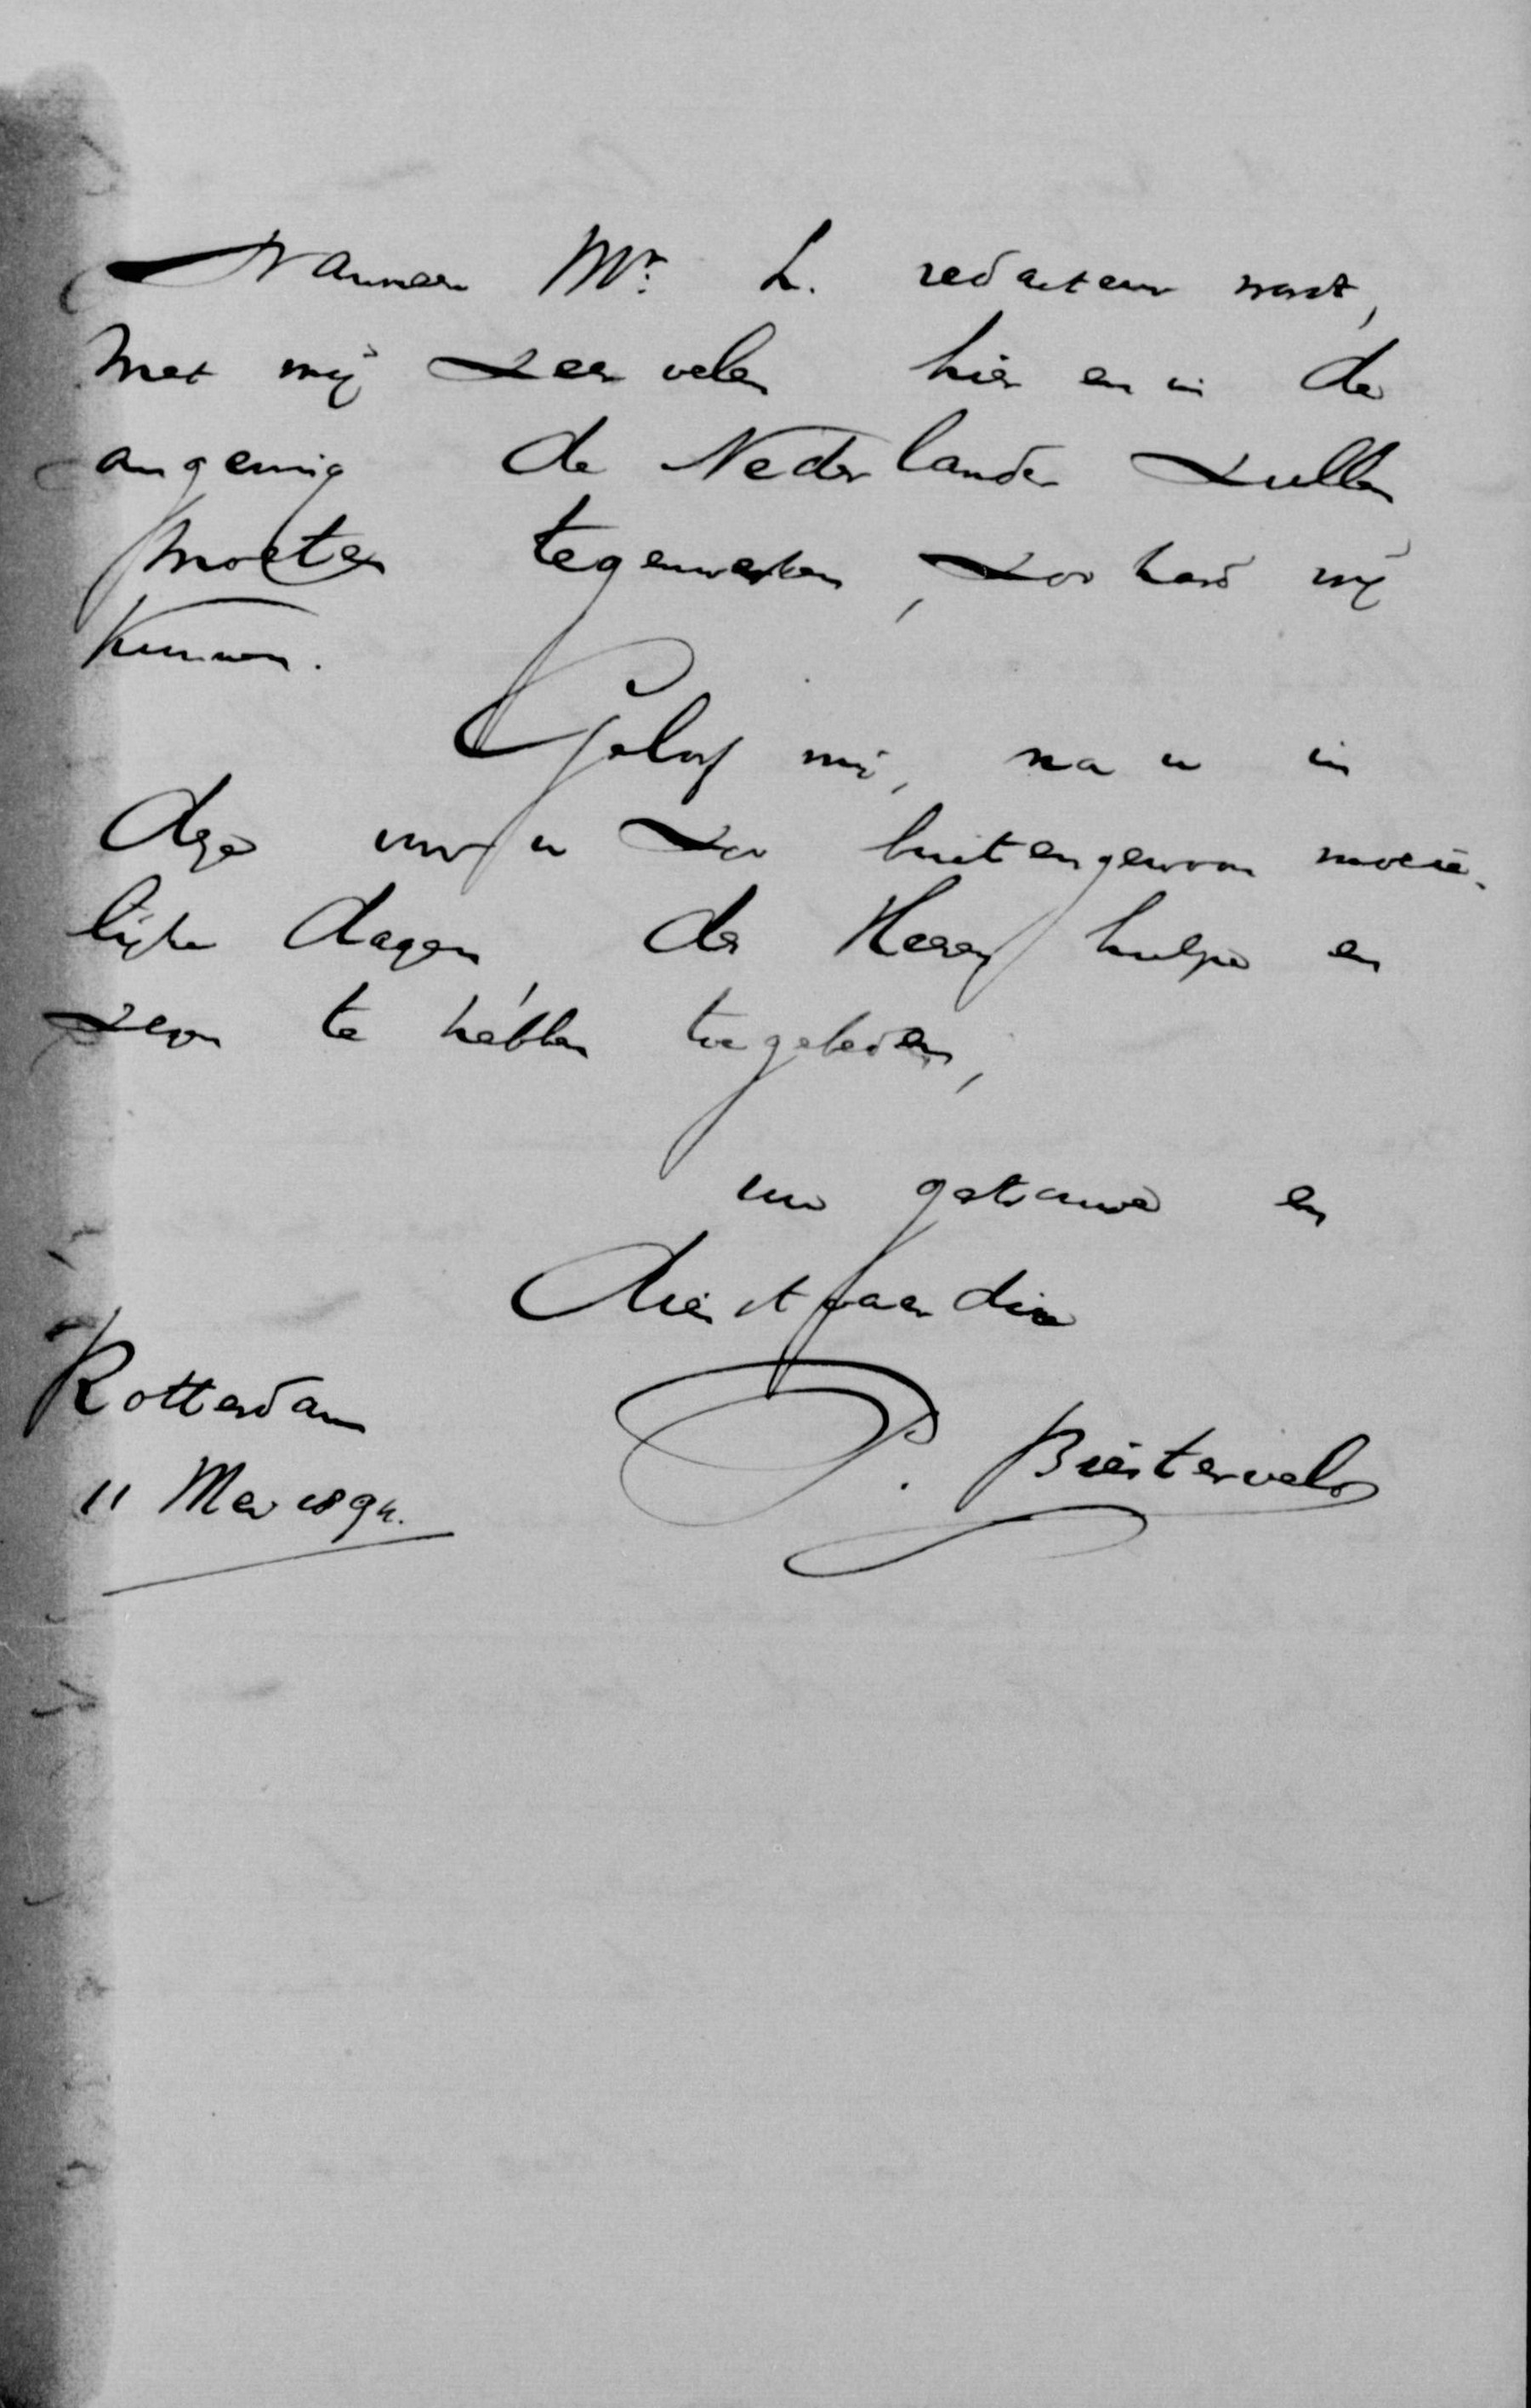 Wanneer Mr. L. redacteur wordt,
met mij zeer velen hier en in de
omgeving de Nederlander zullen
moeten tegenwerken, zoo hard wij
kunnen.
Geloof mij, na u in
deze voor u zoo buitengewoon moeie-
lijke dagen, des Heeren hulpe en
zegen te hebben toegebeden,
uw getrouwe en
dienstvaardige
Rotterdam P. Biesterveld
11 Mei 1894.